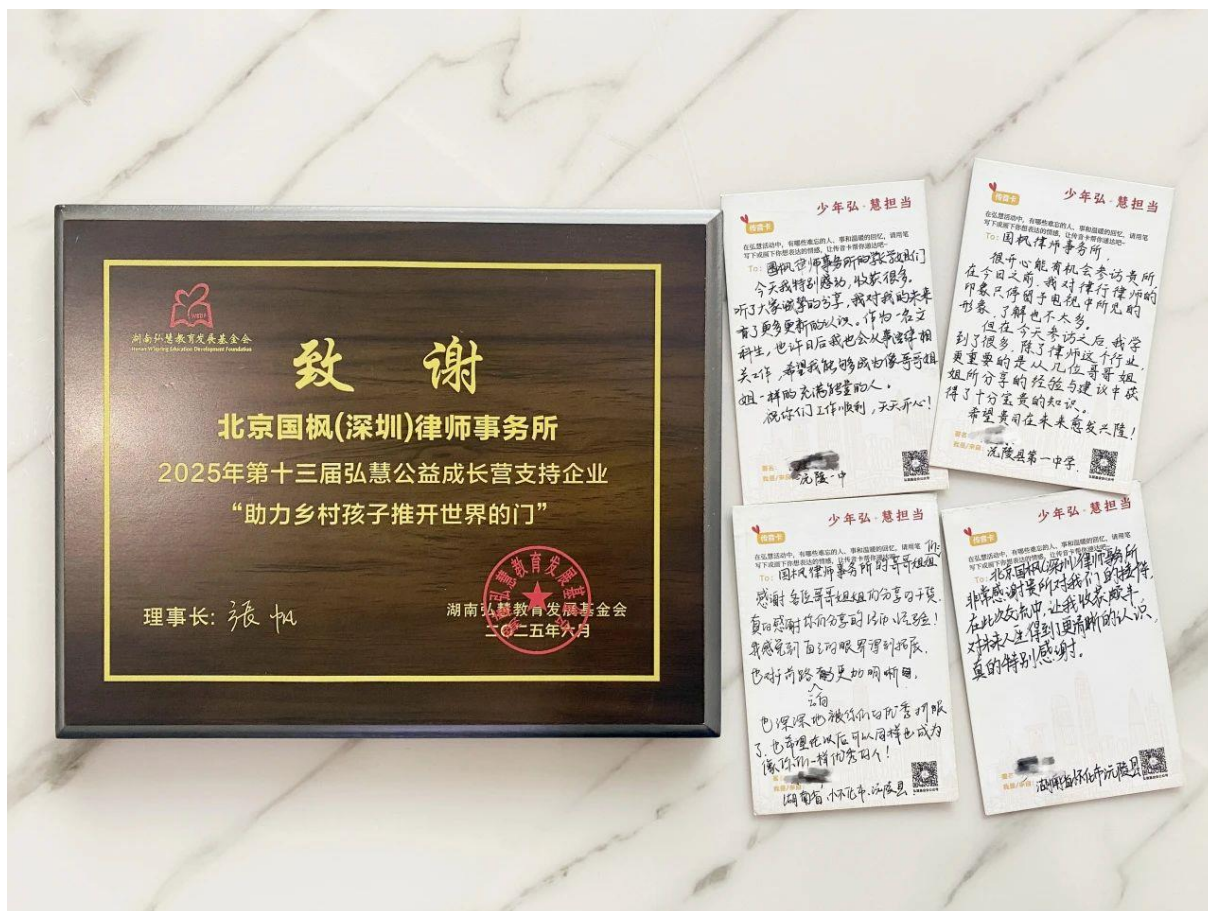 湖南弘慧教育发展基金会
致谢
北京国枫(深圳)律师事务所
2025年第十三届弘慧公益成长营支持企业
“助力乡村孩子推开世界的门”
理事长：張帆
湖南弘慧教育发展基金会
二〇二五年六月
少年弘·慧担当
传音卡
在弘慧活动中，有哪些难忘的人、事和温暖的回忆，请用笔
写下或画下你想表达的情感，让传音卡帮你通达吧~
To：国枫律师事务所的哥哥姐姐们
今天我特别感动，收获很多。
听了大家诚挚的分享，我对我的未来
有了更多更新的认识。作为一名文
科生，也许日后我也会从事法律相
关工作，希望我能够成为像哥哥姐
姐一样的充满能量的人。
祝你们工作顺利，天天开心！
沅陵一中
少年弘·慧担当
传音卡
在弘慧活动中，有哪些难忘的人、事和温暖的回忆，请用笔
写下或画下你想表达的情感，让传音卡帮你通达吧~
To：国枫律师事务所，
很开心能有机会参访贵所，
在今日之前，我对律行律师的
印象只停留于电视中所见的
形象，了解也不太多。
但在今天参访之后，我学
到了很多，除了律师这个行业，
更重要的是从几位哥哥姐
姐所分享的经验与建议中获
得了十分宝贵的知识。
希望贵司在未来愈发兴隆！
沅陵县第一中学
少年弘·慧担当
传音卡
在弘慧活动中，有哪些难忘的人、事和温暖的回忆，请用笔
写下或画下你想表达的情感，让传音卡帮你通达吧~
To：国枫律师事务所的哥哥姐姐
感谢各位哥哥姐姐的分享的干货，
真的感谢你们分享的经验！
我感觉到自己的眼界得到拓展，
也对前路更加明晰
也深深地被你们的优秀折服
了，也希望在以后可以同样也成为
像你们一样优秀的人！
湖南省怀化市沅陵县
少年弘·慧担当
传音卡
在弘慧活动中，有哪些难忘的人、事和温暖的回忆，请用笔
写下或画下你想表达的情感，让传音卡帮你通达吧~
To：北京国枫(深圳)律师事务所
非常感谢贵所对我们的接待，
在此次交流中，让我收获颇丰，
对未来人生得到了更清晰的认识，
真的特别感谢。
湖南省怀化市沅陵县